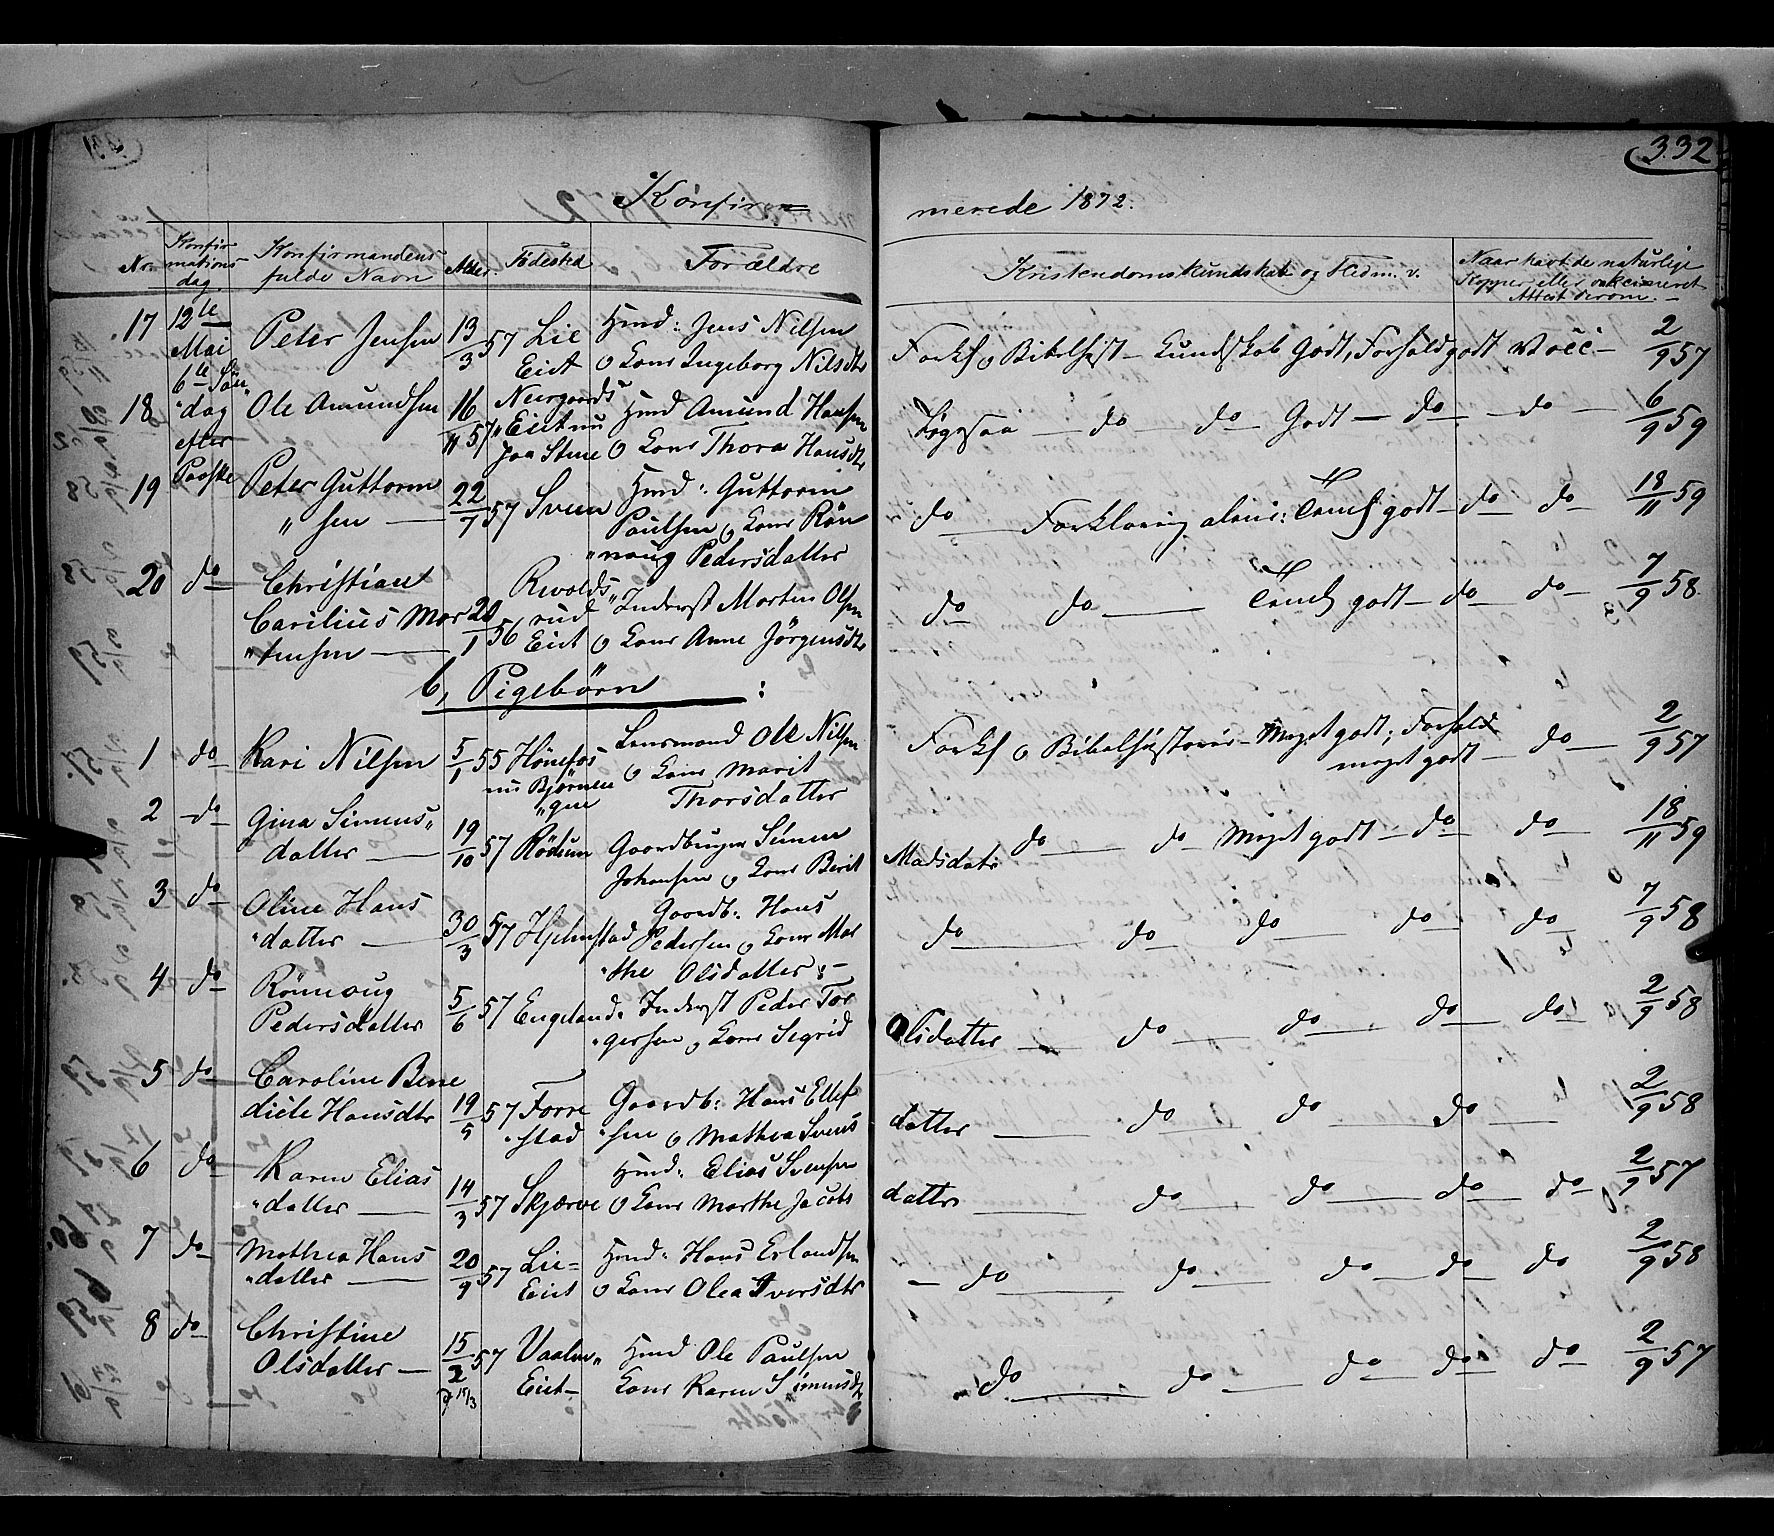 332
Konfir=
merede 1872.
No
Konfir
mations
dag.
Konfirmandens
fulde Navn
Alder.
Födested
Forældre
Kristendomskundskab og Hedm. v.
Naar havt de naturlige
Kopper eller vakcineret
Attest derom.
17 12te Mai 6te Søn" "dag efter Paaske
Peter Jensen 13/3 57 Lie Eiet
Hmd: Jens Nilsen
o Kone Ingeborg Nilsdtr
Forkl o Bibelhist- Kundskab Godt, Forhold godt Vacc- 2/9 57
18 Ole Amundsen 16/11 57 Neergaards "Eiet nu
Hmd Amund Hansen
o Kone Thora Hansdtr
Ligesaa — do — do Godt — do — do — 6/9 59
19 Peter Guttorm
" sen — 22/7 57 Sveen
Hmd: Guttorm
Paulsen o Kone Rön
"noug Pedersdatter
do — Forklaring alene: Teml godt — do — do — 18/11 59
20 do Christian
Carilius Mor
"tensen — 20/1 56
Rvolds"
rud
Eiet
Inderst Morten Olsen
o Kone Anne Jörgensdtr
do do — Teml godt — do — do — 7/9 58.
b, Pigebörn :
1 do Kari Nilsen 5/1 55 Hönefos
nu Bjørnen
"gen
Lensmand Ole Nilsen
o Kone Marit
Thorsdatter
Forkl o Bibelhistorie - Meget godt; Forhold
meget godt — do — 2/9 57
2 do Gina Simens"
datter — 19/10 57 Rödium
Gaardbruger Simen
Johansen o Kone Berit
Madsdatr do — do Meget godt — do do — 18/11 59
3 do Oline Hans
"datter — 30/3 57 Hjelmstad
Gaardb: Hans
Pedersen o Kone Mar
"the Olsdatter; —
do — do do do do 7/9 58
4 do Rönnoug
Pedersdatter 5/6 57 Engeland:
Inderst Peder Tor
"gersen o Kone Sigrid
Olsdatter — do — do — do — do 2/9 58
5 do Caroline Bene
dicte Hansdtr 19/5 57 Forre
"stad
Gaardb: Hans Ellef
"sen o Mathea Svens
datter — do do do 2/9 58
6 do Karen Elias
"datter — 14/3 57 Skjærve
Hmd: Elias Svensen
o Kone Marthe Jacobs
datter — do do — do — do 2/9 57
7 do Mathea Hans
"datter — 20/9 57 Lie=
Eiet
Hmd: Hans Erlandsen
o Kone Olea Iversdtr
— do — do — do — do do 2/9 58
8 do Christine
Olsdatter — 15/2 57 Vaalen"
Eiet—
15/3
Hmd Ole Paulsen
Kone Karen Simensdtr
do — do — do do do 2/9 57